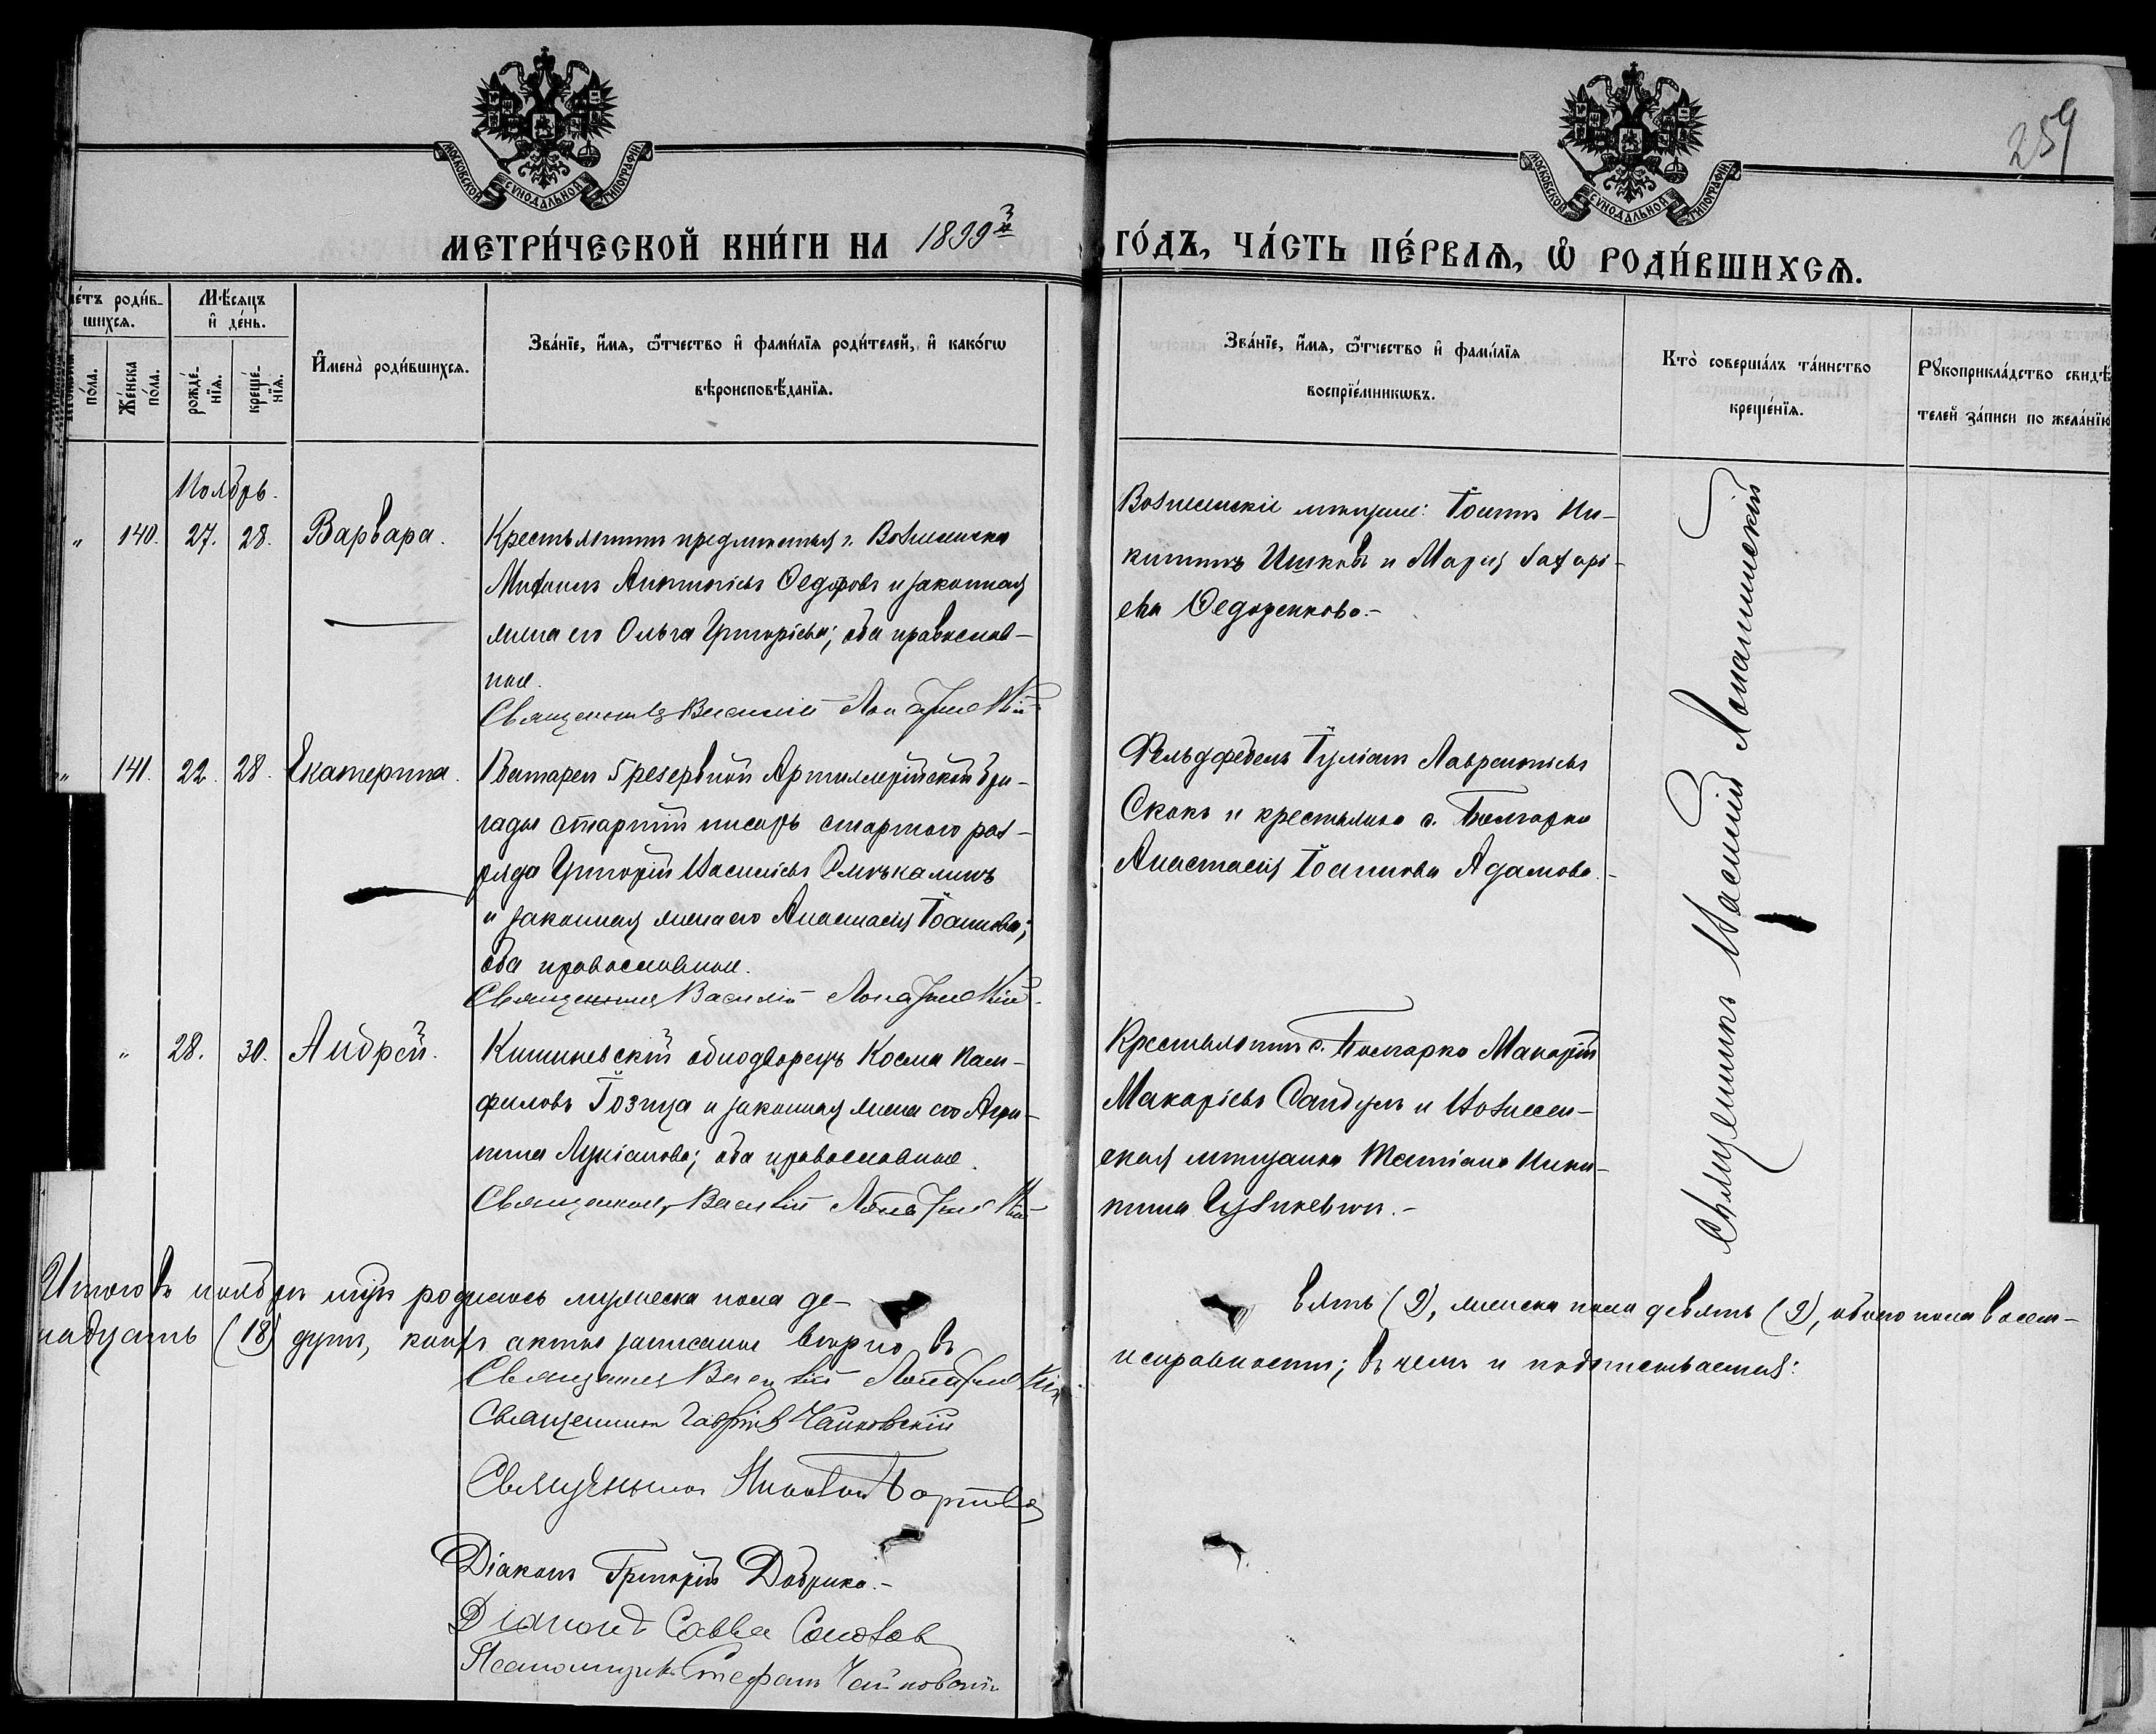 259
МОСКОВСКОЙ СѴНОДАЛЬНОЙ ТИПОГРАФІИ
МОСКОВСКОЙ СѴНОДАЛЬНОЙ ТИПОГРАФІИ
МЕТРИ́ЧЕСКОЙ КНИ́ГИ НА 1899й ГО́ДЪ, ЧА́СТЬ ПЕ́РВАѦ, Ѽ РОДИ́ВШИХСѦ.
ме́тъ роди́в-
шихсѧ.
по́ла.
Же́нска по́ла.
Мѣ́сѧцъ
и҆ де́нь.
рожде́-нїѧ.
креще́-нїѧ.
И҆мена̀ роди́вшихсѧ.
Зва́нїе, и҆́мѧ, ѻ҆́тчество и҆ фами́лїѧ роди́телей, и҆ како́гѡ
вѣроисповѣ́данїѧ.
Зва́нїе, и҆́мѧ, ѻ҆́тчество и҆ фами́лїѧ
воспрїе́мникѡвъ.
Кто̀ соверша́лъ та́инство
креще́нїѧ.
Рꙋкоприкла́дство свидѣ́
телей за́писи по жела́нїю
Ноябрь.
" 140. 27. 28. Варвара.
Крестьянинъ предместья г. Вознесенска
Антоніевъ Федоровъ и законная
жена его Ольга Григоріева; оба православ-
ные.
Священникъ Василій Лопатинскій
Вознесенскіе мещане: Іоаннъ Ни-
китинъ Ишковъ и Марія Захарі-
ева Федоренкова.-
" 141. 22. 28. Екатерина.
Батареи 5 резервной Артиллерійской бри-
гады старшій писарь старшаго раз-
ряда Григорій Василіевъ
и законная жена его Анастасія Іоаннова;
оба православные.
Священникъ Василій Лопатинскій
Фельдфебель Іуліанъ Лаврентіевъ
Скокъ и крестьянка с. Болгарка
Анастасія Іоаннова Адамова.-
" 28. 30. Андрей.
Кишиневскій однодворецъ Косма Пам-
филовъ Гозица и законная жена его Агри-
пина Лукіанова; оба православные.
Священникъ Василій Лопатинскій
Крестьянинъ с. Болгарка Макарій
Макаріевъ Сандулъ и Вознесен-
ская мещанка Татіана Ники-
тина
Священникъ Василій Лопатинскій
Итого въ ноябрѣ мцѣ родилось мужеска пола де-
вять (9), женска пола девять (9), обоего пола восем-
надцать (18) душъ, коихъ акты записаны верно въ
исправности; въ чемъ и подписываемся:
Священникъ Василій Лопатинскій
Священникъ Гавріилъ Чайковскій
Священникъ Николай
Діаконъ Григорій Добрика.-
Діаконъ Савва
Псаломщикъ Стефанъ Чайковскій